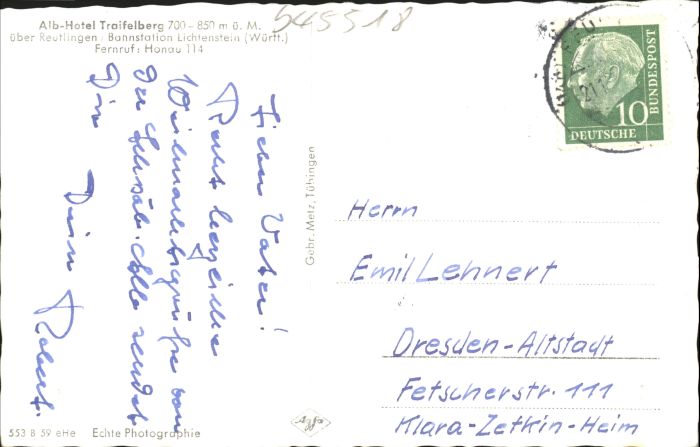 Alb-Hotel Traifelberg 700 - 850 m ü. M.
über Reutlingen / Bahnstation Lichtenstein (Württ.)
Fernruf: Honau 114
645518
Lieber Vater!
Recht herzliche
Weihnachtsgrüße von
der Schwäb. Alb sendet
Dir
Dein Robert.
Gebr. Metz, Tübingen
10
DEUTSCHE
BUNDESPOST
Herrn
Emil Lehnert
Dresden-Altstadt
Fetscherstr. 111
Klara-Zetkin-Heim
553 B 59 eHe Echte Photographie
Agfa